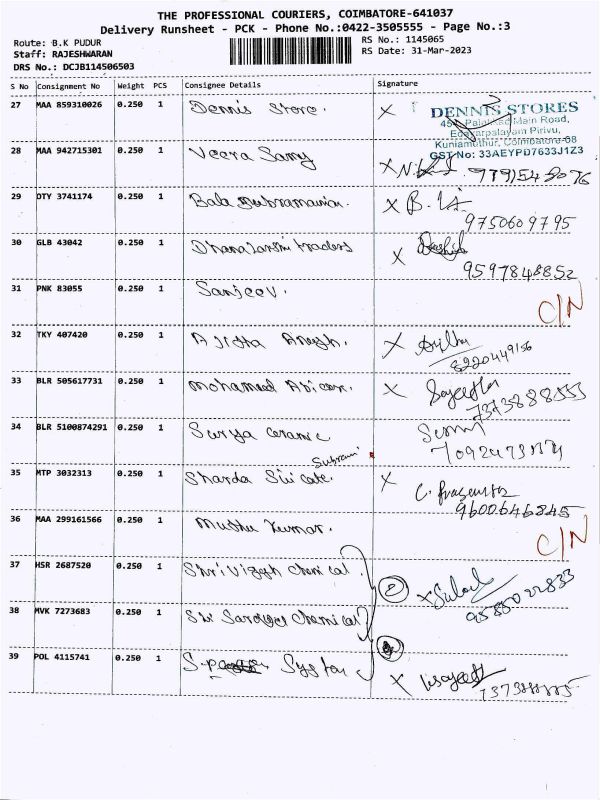 THE PROFESSIONAL COURIERS, COIMBATORE-641037
Delivery Runsheet - PCK - Phone No.:0422-3505555 - Page No.:3
Route: B.K PUDUR
RS No.: 1145065
Staff: RAJESHWARAN
RS Date: 31-Mar-2023
DRS No.: DCJB114506503
S No Consignment No Weight PCS Consignee Details Signature
27 MAA 859310026 0.250 1 Dennis Store. X
DENNIS STORES
Main Road,
Edayarpalayam Pirivu,
Kuniamuthur, Coimbatore-08
GST No: 33AEYPD7633J1Z3
28 MAA 942715301 0.250 1 Veera Samy X
29 OTY 3741174 0.250 1 Bala Subramanian. X
9750609795
30 GLB 43042 0.250 1 Dhanalaxmi traders X
9597848852
31 PNK 83055 0.250 1 Sanjeev.
C/N
32 TKY 407420 0.250 1 X
8220449156
33 BLR 505617731 0.250 1 Mohamed X
7373888553
34 BLR 5100874291 0.250 1 Surya ceramic
35 MTP 3032313 0.250 1 Sharda X
9600646845
36 MAA 299161566 0.250 1 Muthu Kumar.
C/N
37 HSR 2687520 0.250 1 Shri Chemical X
9585022833
38 MVK 7273683 0.250 1 Sri Chemical
39 POL 4115741 0.250 1 X